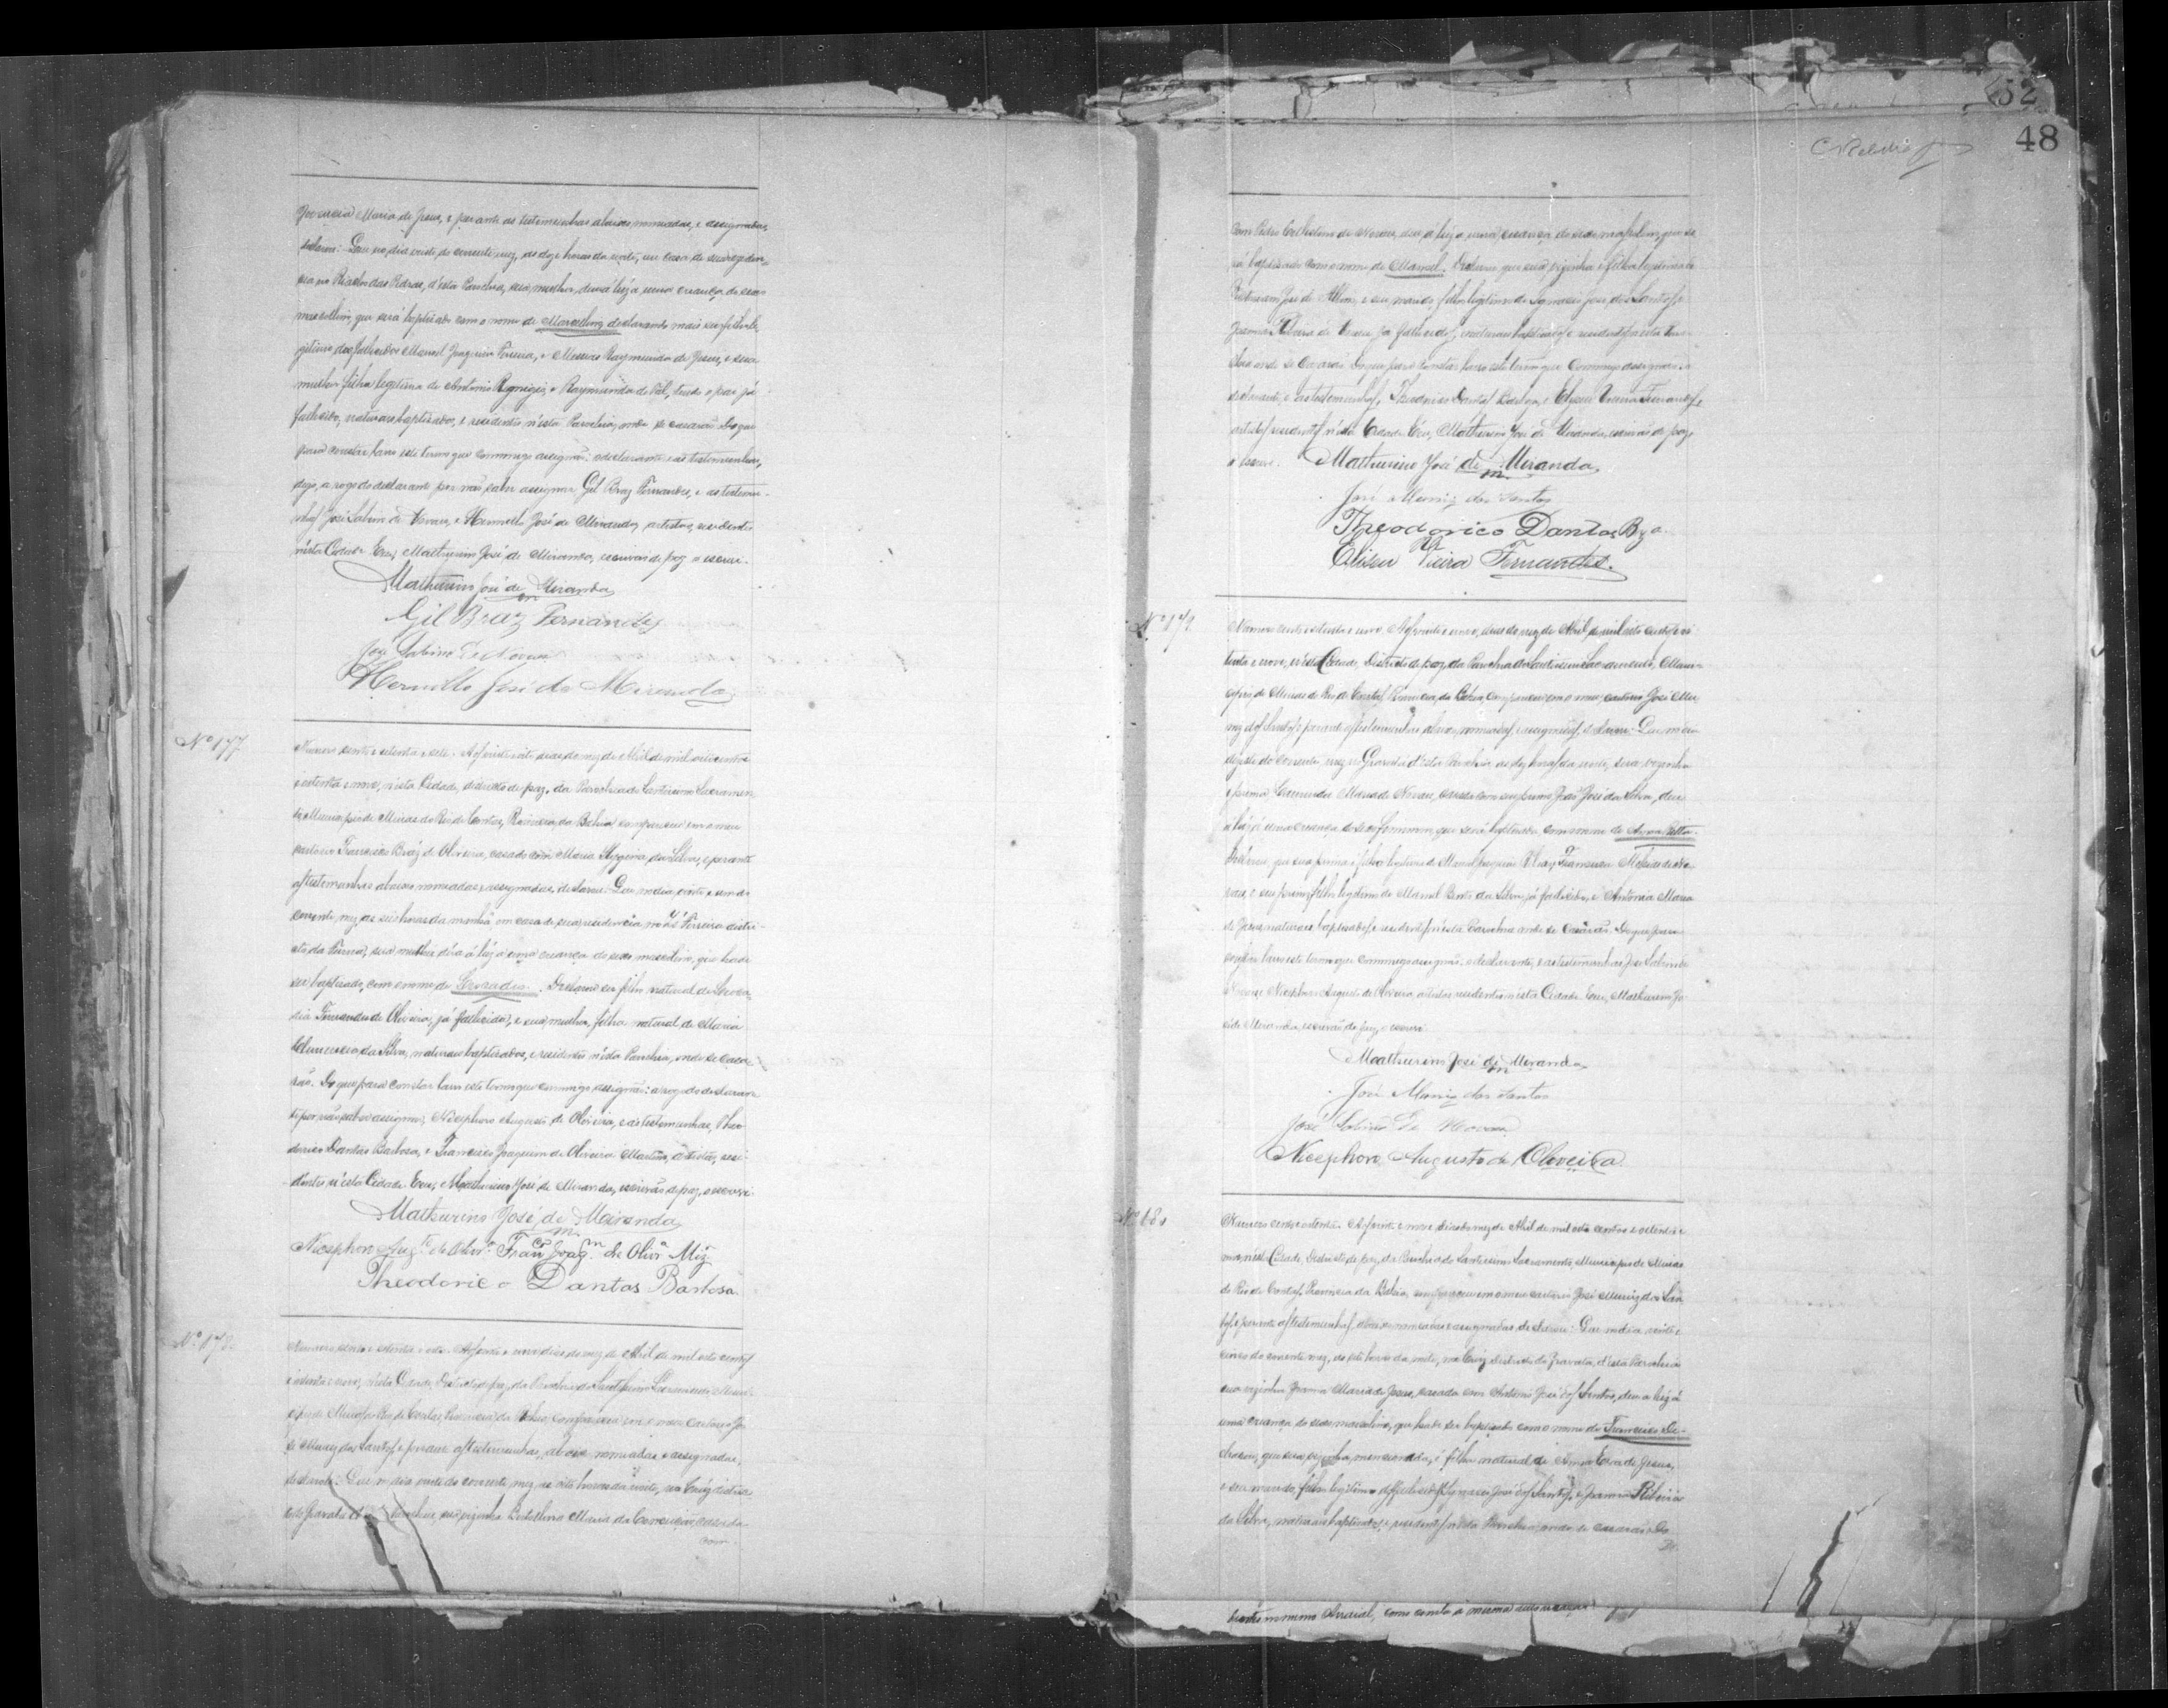 Maria de Jesus, e perante as testemunhas abaixo nomeadas, e assignadas,
declarou: Que no dia vinte do corrente mez, as doze horas da noite, em casa de sua residen-
cia no Riacho das Pedras, d'esta Parochia, sua mulher, deu á luz a uma creança do sexo
masculino, que será baptisado com o nome de Marcellino, declarando mais ser filho le-
gitimo dos fallecidos Manoel Joaquim Pereira, e Messias Raymunda de Jesus, e sua
mulher filha legitima de Antonio Remigio, e Raymunda de tal, sendo o pae já
fallecido, naturaes baptisados, e residentes n'esta Parochia, onde se casarão. Do que
para constar lavro este termo que commigo assignão: o declarante e as testemunhas,
digo, a rogo do declarante por não saber assignar Gil Braz Fernandes, e as testemu-
nhas José Sabino de Novaes, e Hermello José de Miranda, artistas, residentes
n'esta Cidade. Eu, Mathurino José de Miranda, escrivão de paz o escrevi.
Mathurino José de Miranda
Gil Braz Fernandes
José Sabino de Novaes
Hermello José de Miranda
Nº 177
Numero cento e setenta e sete. Aos vinte e oito dias do mez de Abril de mil oitocentos
e setenta e nove, n'esta Cidade, districto de paz, da Parochia do Santissimo Sacramen-
to, Municipio de Minas do Rio de Contas, Provincia da Bahia, compareceu em o meu
cartorio Francisco Braz de Oliveira, casado com Maria Hygina da Silva, e perante
as testemunhas abaixo nomeadas, e assignadas, declarou: Que no dia vinte e um do
corrente mez, as seis horas da manhã em casa de sua residencia no Ferreira distri-
cto da Furna, sua mulher déra á luz a uma creança do sexo masculino, que hade
ser baptisado, com o nome de . Declarou ser filho natural de Leoca-
dia Fernandes de Oliveira, já fallecida, e sua mulher, filha natural de Maria
da Silva, naturaes baptisados, e residentes n'esta Parochia, onde se casa-
rão. Do que para constar lavro este termo que commigo assignão: a rogo do declaran-
te por não saber assignar, Nicephoro Augusto de Oliveira, e as testemunhas, Theo-
dorico Dantas Barbosa, e Francisco Joaquim de Oliveira Martins, artistas, resi-
dentes n'esta Cidade. Eu, Mathurino José de Miranda, escrivão de paz, o escrevi.
Mathurino José de Miranda
Nicephoro Augto de Olivra Franco Joaqm de Olivra Miz
Theodorico Dantas Barbosa
Nº 178
Numero cento e setenta e oito. Aos vinte e nove dias do mez de Abril de mil oito centos
e setenta e nove, n'esta Cidade, Districto de paz, da Parochia do Santissimo Sacramento, Muni-
cipio de Minas do Rio de Contas Provincia da Bahia, compareceu em o meu Cartorio Jo-
sé Muniz dos Santos, e perante as testemunhas, abaixo nomeadas e assignadas,
declarou: Que no dia vinte do corrente mez, as oito horas da noite, na Cruz distric-
to do Gravatá d'esta Parochia, sua vizinha Maria da Conceição, casada
com
52
48
Com Pedro Celestino de Novaes, deu a luz a uma creança do sexo masculino, que se-
rá baptisado com o nome de Manoel. Declarou que sua vizinha é filha legitima de
José de , e seu marido, filho legitimo de Ignacio José dos Santos, e
Joanna Ribeiro de já fallecidos, naturaes baptisados, e residentes n'esta Paro-
chia onde se casarão. Do que para constar lavro este termo que commigo assignão: o
declarante, e as testemunhas, Theodorico Dantas Barbosa, e Elyseu Vieira Fernandes,
artistas residentes n'esta Cidade. Eu, Mathurino José de Miranda, escrivão de paz,
o escrevi. Mathurino José de Miranda
José Muniz dos Santos
Theodorico Dantas Bza
Eliseu Vieira Fernandes.
Nº 179
Numero cento e setenta e nove. Aos vinte e nove, dias do mez de Abril de mil oito centos e se-
tenta e nove, n'esta Cidade, Districto de paz, da Parochia do Santissimo Sacramento, Muni-
cipio de Minas do Rio de Contas, Provincia da Bahia, compareceu em o meu cartorio José Mu-
niz dos Santos, e perante as testemunhas abaixo, nomeadas, e assignadas, declarou: Que no dia
do corrente mez no Gravatá d'esta Parochia as dez horas da noite, sua vizinha
e prima Maria de Novaes, casada com seu primo José da Silva, deu
á luz á uma creança do sexo feminino, que será baptisada, com o nome de Anna Ritta.
Declarou, que sua prima é filha legitima de Manoel Joaquim e Francisca Maria de No-
vaes, e seu primo filho legitimo de Manoel Bento da Silva, já fallecido, e Antonia Maria
de Jesus naturaes, baptisados, e residentes n'esta Parochia onde se casarão. Do que para
constar lavro este termo que commigo assignão: o declarante, e as testemunhas José Sabino de
Novaes e Nicephoro Augusto de Oliveira, artistas residentes n'esta Cidade. Eu, Mathurino Jo-
sé de Miranda, escrivão de paz, o escrevi.
Mathurino José de Miranda
José Muniz dos Santos
José Sabino de Novaes
Nicephoro Augusto de Oliveira
Nº 180
Numero cento e oitenta. Aos vinte e nove dias do mez de Abril de mil oito centos e setenta e
nove, n'esta Cidade, Districto de paz, da Parochia do Santissimo Sacramento, Municipio de Minas
do Rio de Contas, Provincia da Bahia, compareceu em o meu cartorio José Muniz dos San-
tos, e perante as testemunhas, abaixo nomeadas e assignadas, declarou: Que no dia vinte e
cinco do corrente mez, as sete horas da noite, na Cruz districto do Gravatá, d'esta Parochia
sua vizinha Joanna Maria de Jesus, casada com Antonio José dos Santos, deu a luz á
uma creança do sexo masculino, que hade ser baptisado com o nome de Francisco. De-
clarou, que sua vizinha, mencionada, é filha natural de Anna Eva de Jesus,
e seu marido, filho legitimo dos fallecidos Ignacio José dos Santos, e Joanna Ribeiro
da Silva, naturaes baptisados, e residentes n'esta Parochia, onde se casarão. Do
mesmo Arraial, como consta